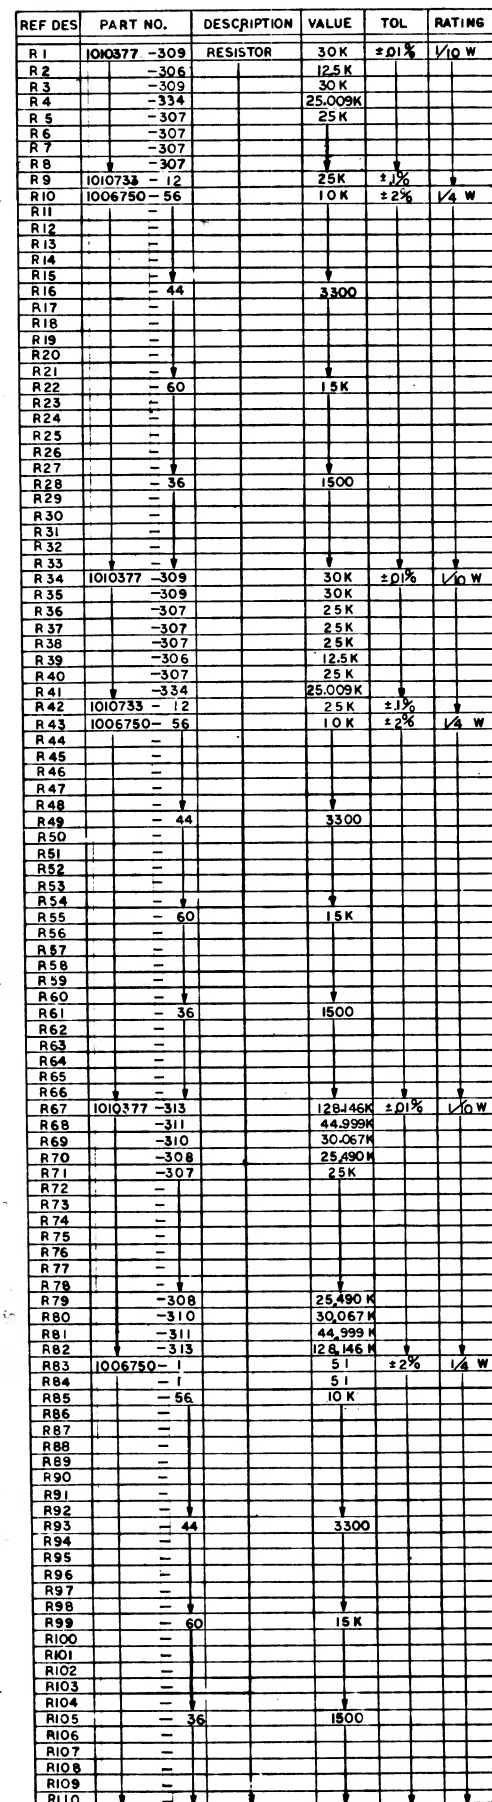 REF DES PART NO. DESCRIPTION VALUE TOL RATING
R1 1010377 -309 RESISTOR 30K ±.01% 1/10 W
R2 -306 12.5K
R3 -309 30K
R4 -334 25.009K
R5 -307 25K
R6 -307
R7 -307
R8 -307
R9 1010733 - 12 25K ±.1%
R10 1006750 - 56 10K ±2% 1/4 W
R11 -
R12 -
R13 -
R14 -
R15 -
R16 - 44 3300
R17 -
R18 -
R19 -
R20 -
R21 -
R22 - 60 15K
R23 -
R24 -
R25 -
R26 -
R27 -
R28 - 36 1500
R29 -
R30 -
R31 -
R32 -
R33 -
R34 1010377 -309 30K ±.01% 1/10 W
R35 -309 30K
R36 -307 25K
R37 -307 25K
R38 -307 25K
R39 -306 12.5K
R40 -307 25K
R41 -334 25.009K
R42 1010733 - 12 25K ±.1%
R43 1006750- 56 10K ±2% 1/4 W
R44 -
R45 -
R46 -
R47 -
R48 -
R49 - 44 3300
R50 -
R51 -
R52 -
R53 -
R54 -
R55 - 60 15K
R56 -
R57 -
R58 -
R59 -
R60 -
R61 - 36 1500
R62 -
R63 -
R64 -
R65 -
R66 -
R67 1010377 -313 128.146K ±.01% 1/10 W
R68 -311 44.999K
R69 -310 30.067K
R70 -308 25.490K
R71 -307 25K
R72 -
R73 -
R74 -
R75 -
R76 -
R77 -
R78 -
R79 -308 25.490 K
R80 -310 30.067 K
R81 -311 44.999 K
R82 -313 128.146 K
R83 1006750- 1 51 ±2% 1/4 W
R84 - 1 51
R85 - 56 10 K
R86 -
R87 -
R88 -
R89 -
R90 -
R91 -
R92 -
R93 - 44 3300
R94 -
R95 -
R96 -
R97 -
R98 -
R99 - 60 15K
R100 -
R101 -
R102 -
R103 -
R104 -
R105 - 36 1500
R106 -
R107 -
R108 -
R109 -
R110 -